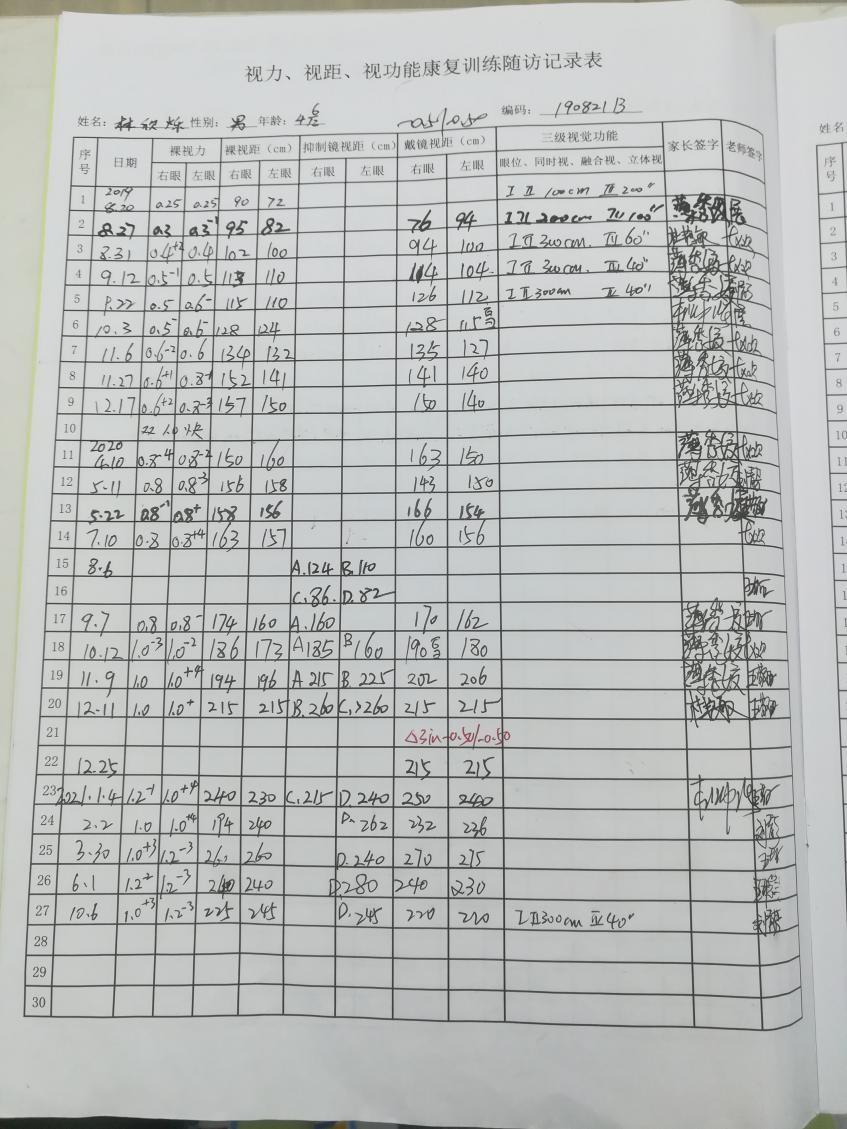 视力、视距、视功能康复训练随访记录表
姓名: 林欣烁 性别: 男 年龄: 6岁 -0.5/-0.50 编码: 190821B
序号 日期 裸视力 裸视距(cm) 抑制镜视距(cm) 戴镜视距(cm) 三级视觉功能 家长签字 老师签字
右眼 左眼 右眼 左眼 右眼 左眼 右眼 左眼 眼位、同时视、融合视、立体视
1 2019 8.20 0.25 0.25 90 72 I II 100cm IV 200"
2 8.27 0.3 0.3⁻¹ 95 82 76 94 I II 200cm IV 100"
3 8.31 0.4⁺² 0.4 102 100 94 100 I II 300cm. IV 60"
4 9.12 0.5⁻¹ 0.5 113 110 104 104. I II 300cm. IV 40"
5 9.22 0.5 0.6⁻ 115 110 126 112 I II 300cm IV 40"
6 10.3 0.5⁻ 0.6⁻ 128 124 128 115
7 11.6 0.6⁻² 0.6 134 132 135 127
8 11.27 0.6⁺¹ 0.8⁻⁴ 152 141 141 140
9 12.17 0.6⁺² 0.8⁻³ 157 150 150 140
10
11 2020 4.10 0.8⁻⁴ 0.8⁻² 150 160 163 150
12 5.11 0.8 0.8⁻³ 156 158 143 150
13 5.22 0.8⁻¹ 0.8⁺ 158 156 166 154
14 7.10 0.8 0.8⁺⁴ 163 157 160 156
15 8.6 A.124 B.110
16 C.86. D.82
17 9.7 0.8 0.8⁻ 174 160 A.160 170 162
18 10.12 1.0⁻³ 1.0⁻² 186 173 A185 B160 190 180
19 11.9 1.0 1.0⁺⁴ 194 196 A 215 B.225 202 206
20 12.11 1.0 1.0⁺ 215 215 B.260 C.>260 215 215
21 △3in -0.50/-0.50
22 12.25 215 215
23 2021.1.4 1.2⁻¹ 1.0⁺⁴ 240 230 C.215 D.240 250 240
24 2.2 1.0 1.0⁺⁴ 194 240 D.262 232 236
25 3.30 1.0⁺³ 1.2⁻³ 260 260 D.240 270 275
26 6.1 1.2⁻² 1.2⁻³ 240 240 D.280 240 230
27 10.6 1.0⁺³ 1.2⁻³ 225 245 D.245 220 220 I II 300cm IV 40"
28
29
30
姓名
序号
1
2
3
4
5
6
7
8
9